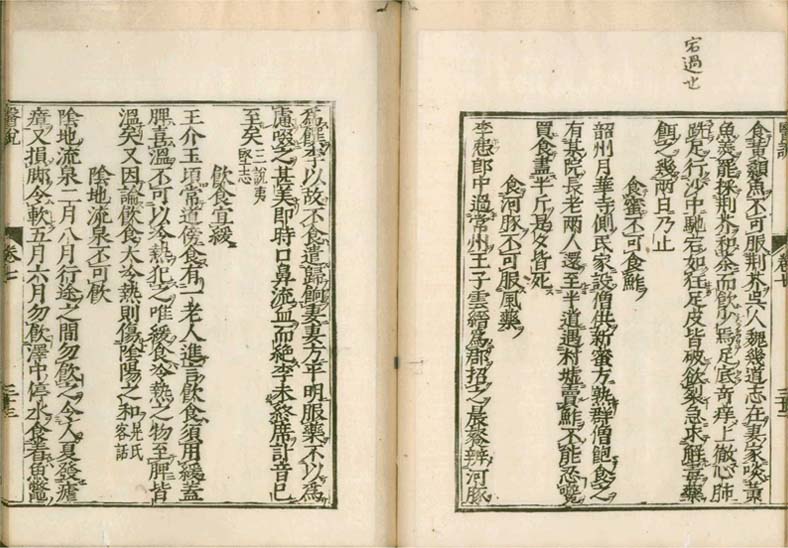 宕過也
卷七
食黃顙魚不可服荊芥吳人魏幾道志在妻家啖黃
魚羹罷採荊芥和茶而飲少焉足底奇痒上徹心肺
跣足行沙中馳宕如狂足皮皆破欲裂急求解毒藥
餌之幾兩日乃止
食蜜不可食鮓
韶州月華寺側民家設僧供新蜜方熟群僧飽食之
有某院長老兩人還至半道遇村墟賣鮓不能忍饞
買食盡半斤是夕皆死
食河豚不可服風藥
李怱郎中過常州王子雲縉爲郡招之晨餐辨河豚
爲饌李以故不食遣歸餉妻妻方平明服藥不以爲
慮啜之甚美即時口鼻流血而絕李未終席訃音已
至矣三說夷堅志
飲食宜緩
王介玉項常道傍食有一老人進言飲食須用緩蓋
脾喜溫不可以冷熱犯之唯緩食冷熱之物至脾皆
溫矣又因論飲食大冷熱則傷陰陽之和晁氏客話
陰地流泉不可飲
陰地流泉二月八月行途之間勿飲之令人夏發瘧
瘴又損脚令軟五月六月勿飲澤中停水食着魚鼈
醫說 卷七 三十三